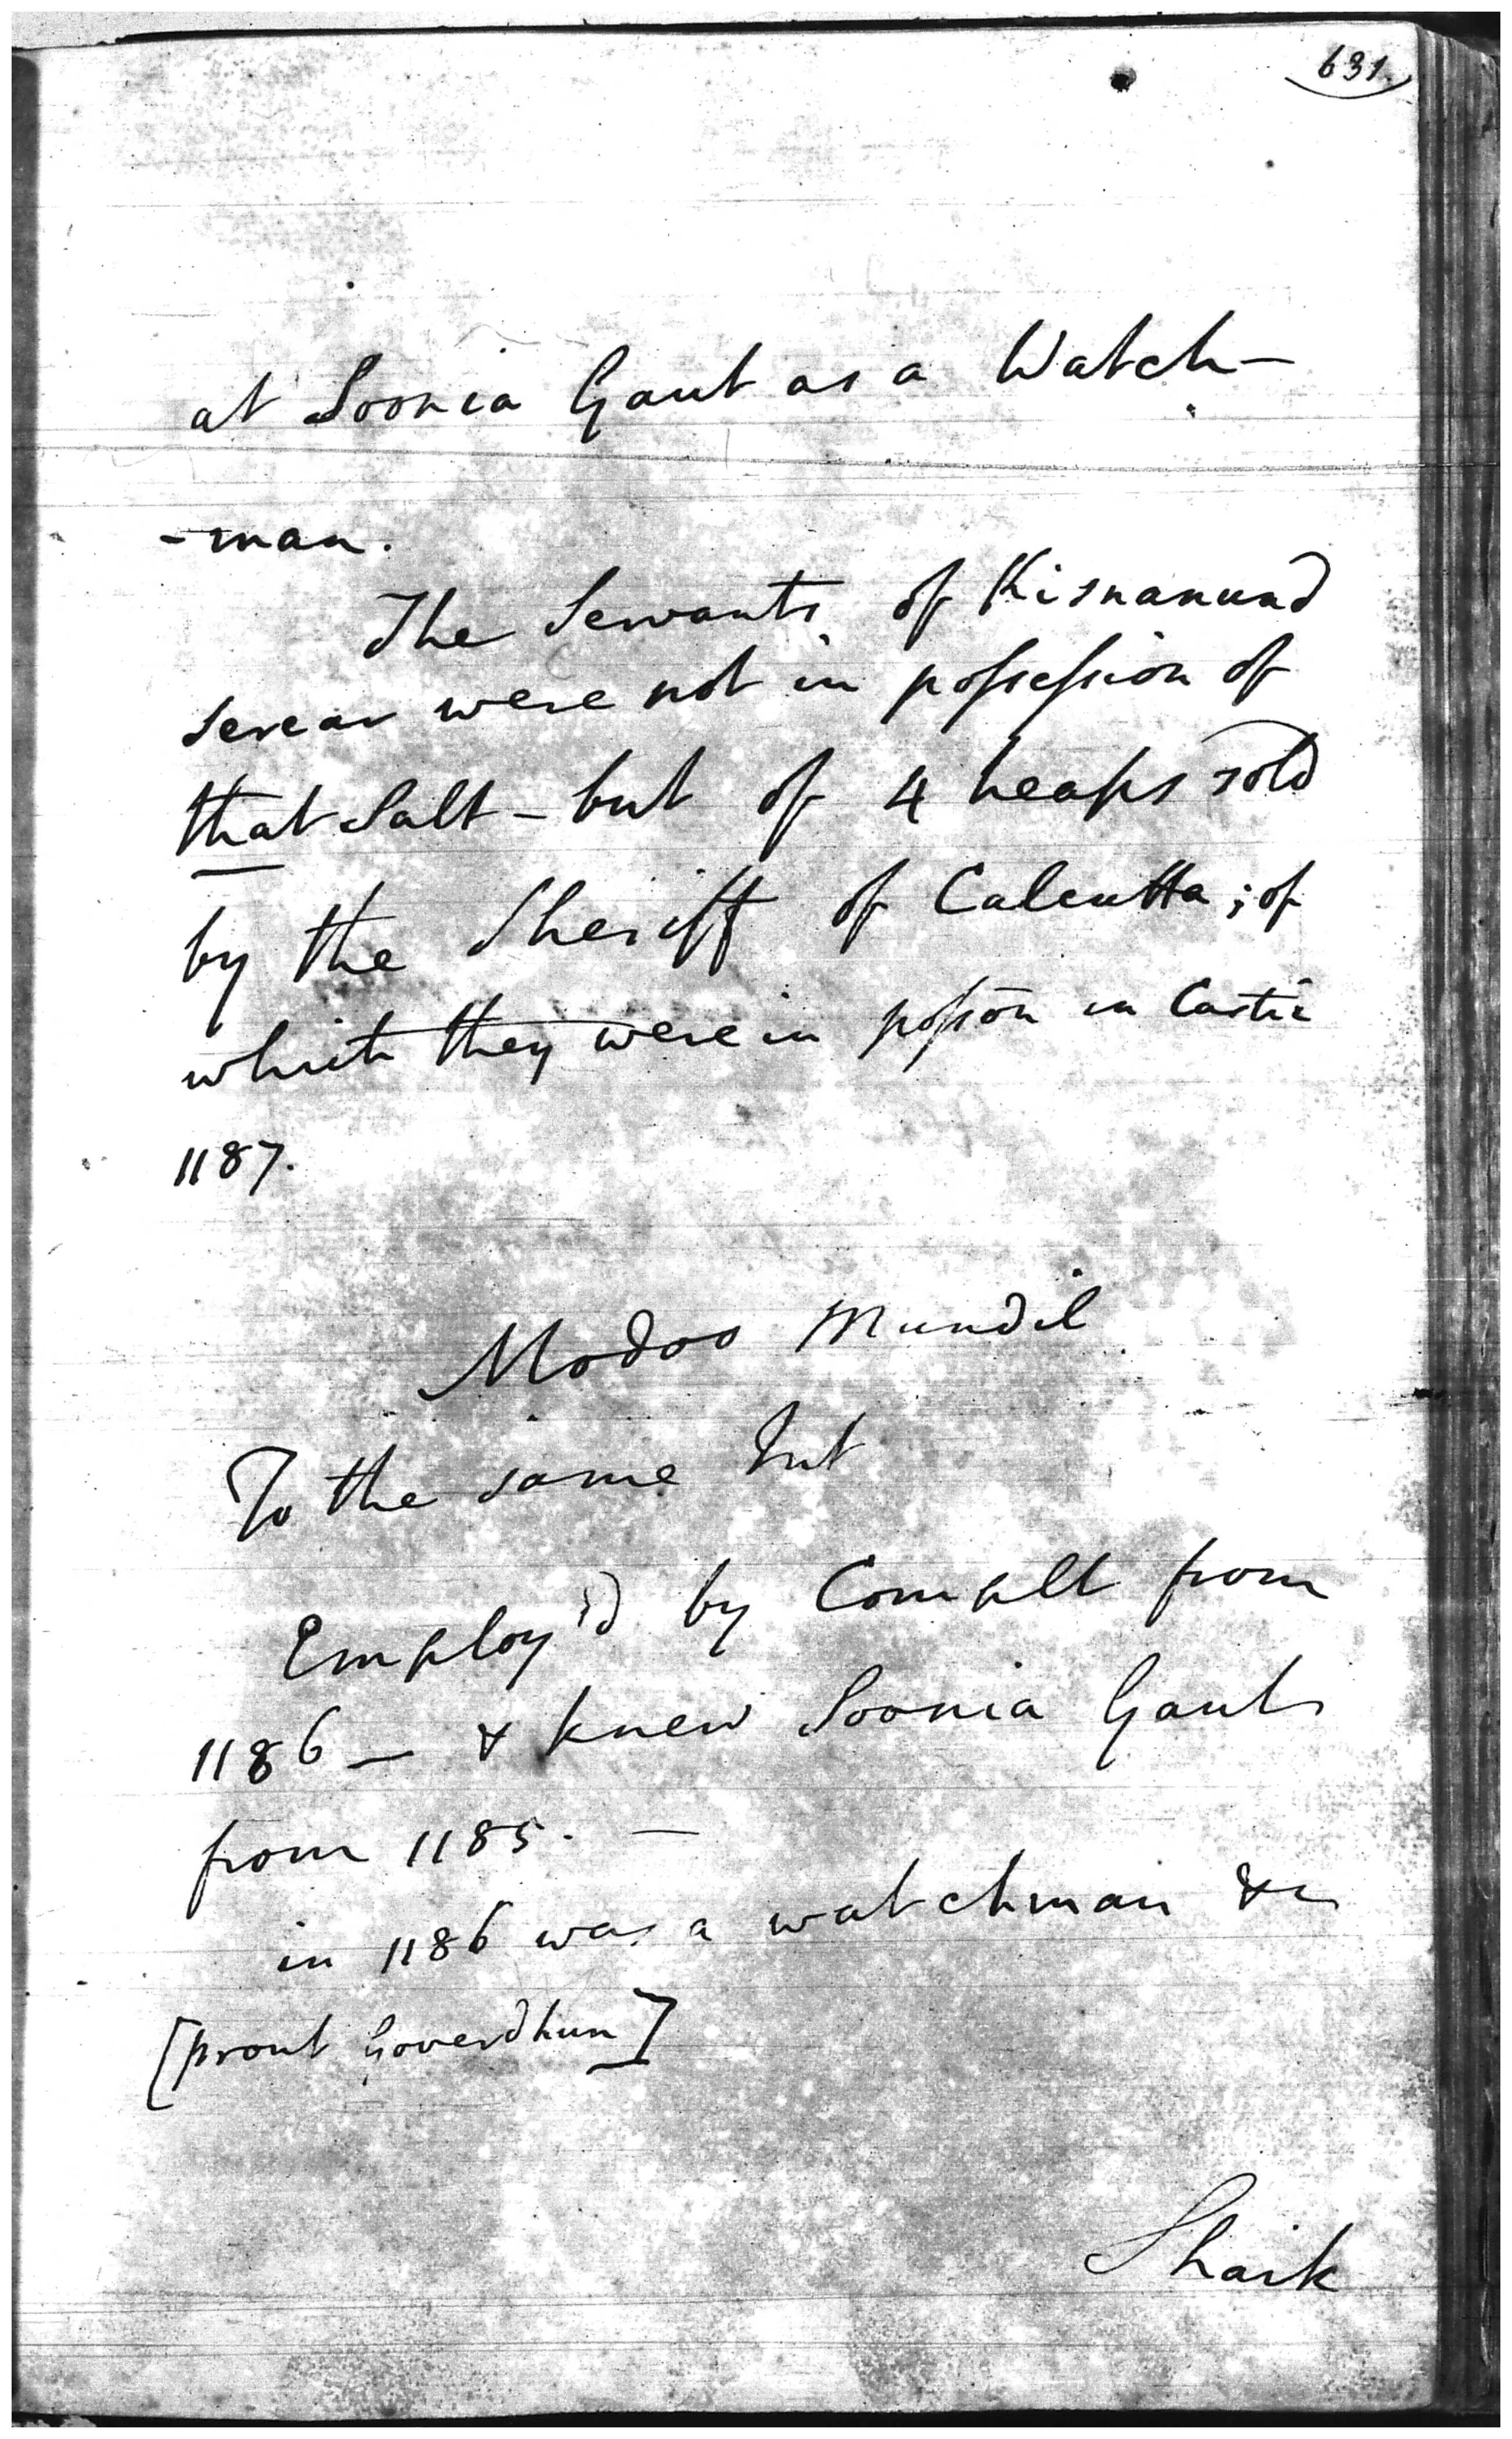 631.
at Soonia Gaut as a Watch-
-man.
The Servants of Kisnanund
Sercar were not in possession of
that Salt - but of 4 heaps sold
by the Sheriff of Calcutta; of
which they were in possōn in Cartic
1187.
Modoo Mundil
To the same Int
Employ'd by Complt from
1186 - & knew Soonia Gaut
from 1185. -
in 1186 was a watchman &c
[prout Goverdhun]
Shaik